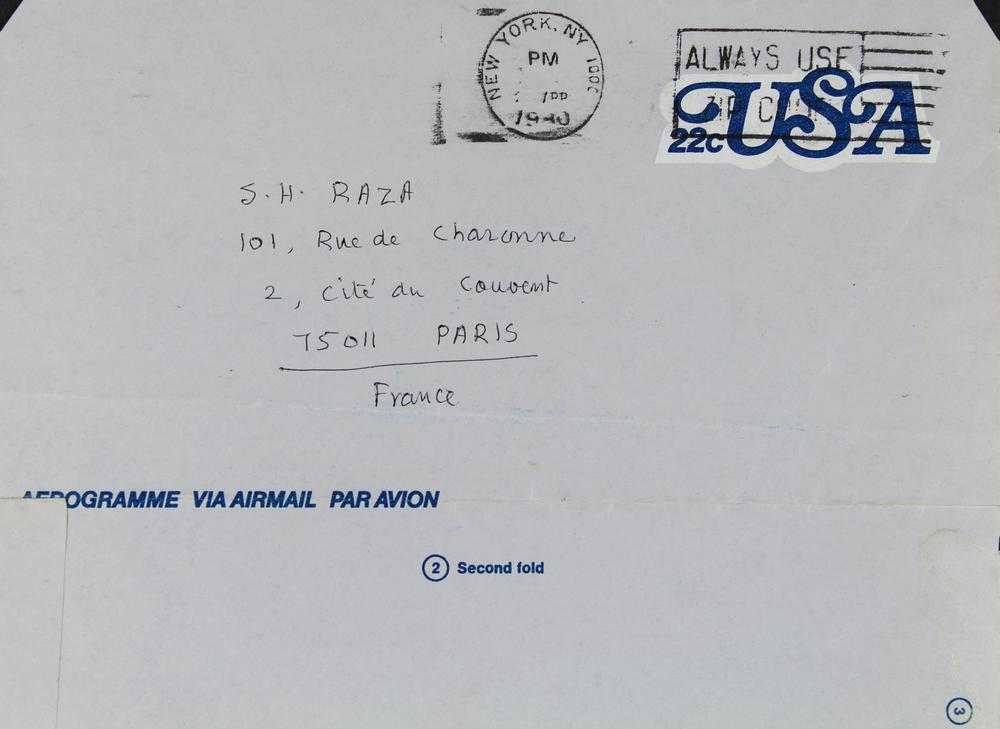 NEW YORK, NY
PM
ALWAYS USE
USA
22c
S.H. RAZA
101, Rue de Charonne
2, Cité du Couvent
75011 PARIS
France
AEROGRAMME VIA AIRMAIL PAR AVION
2 Second fold
3